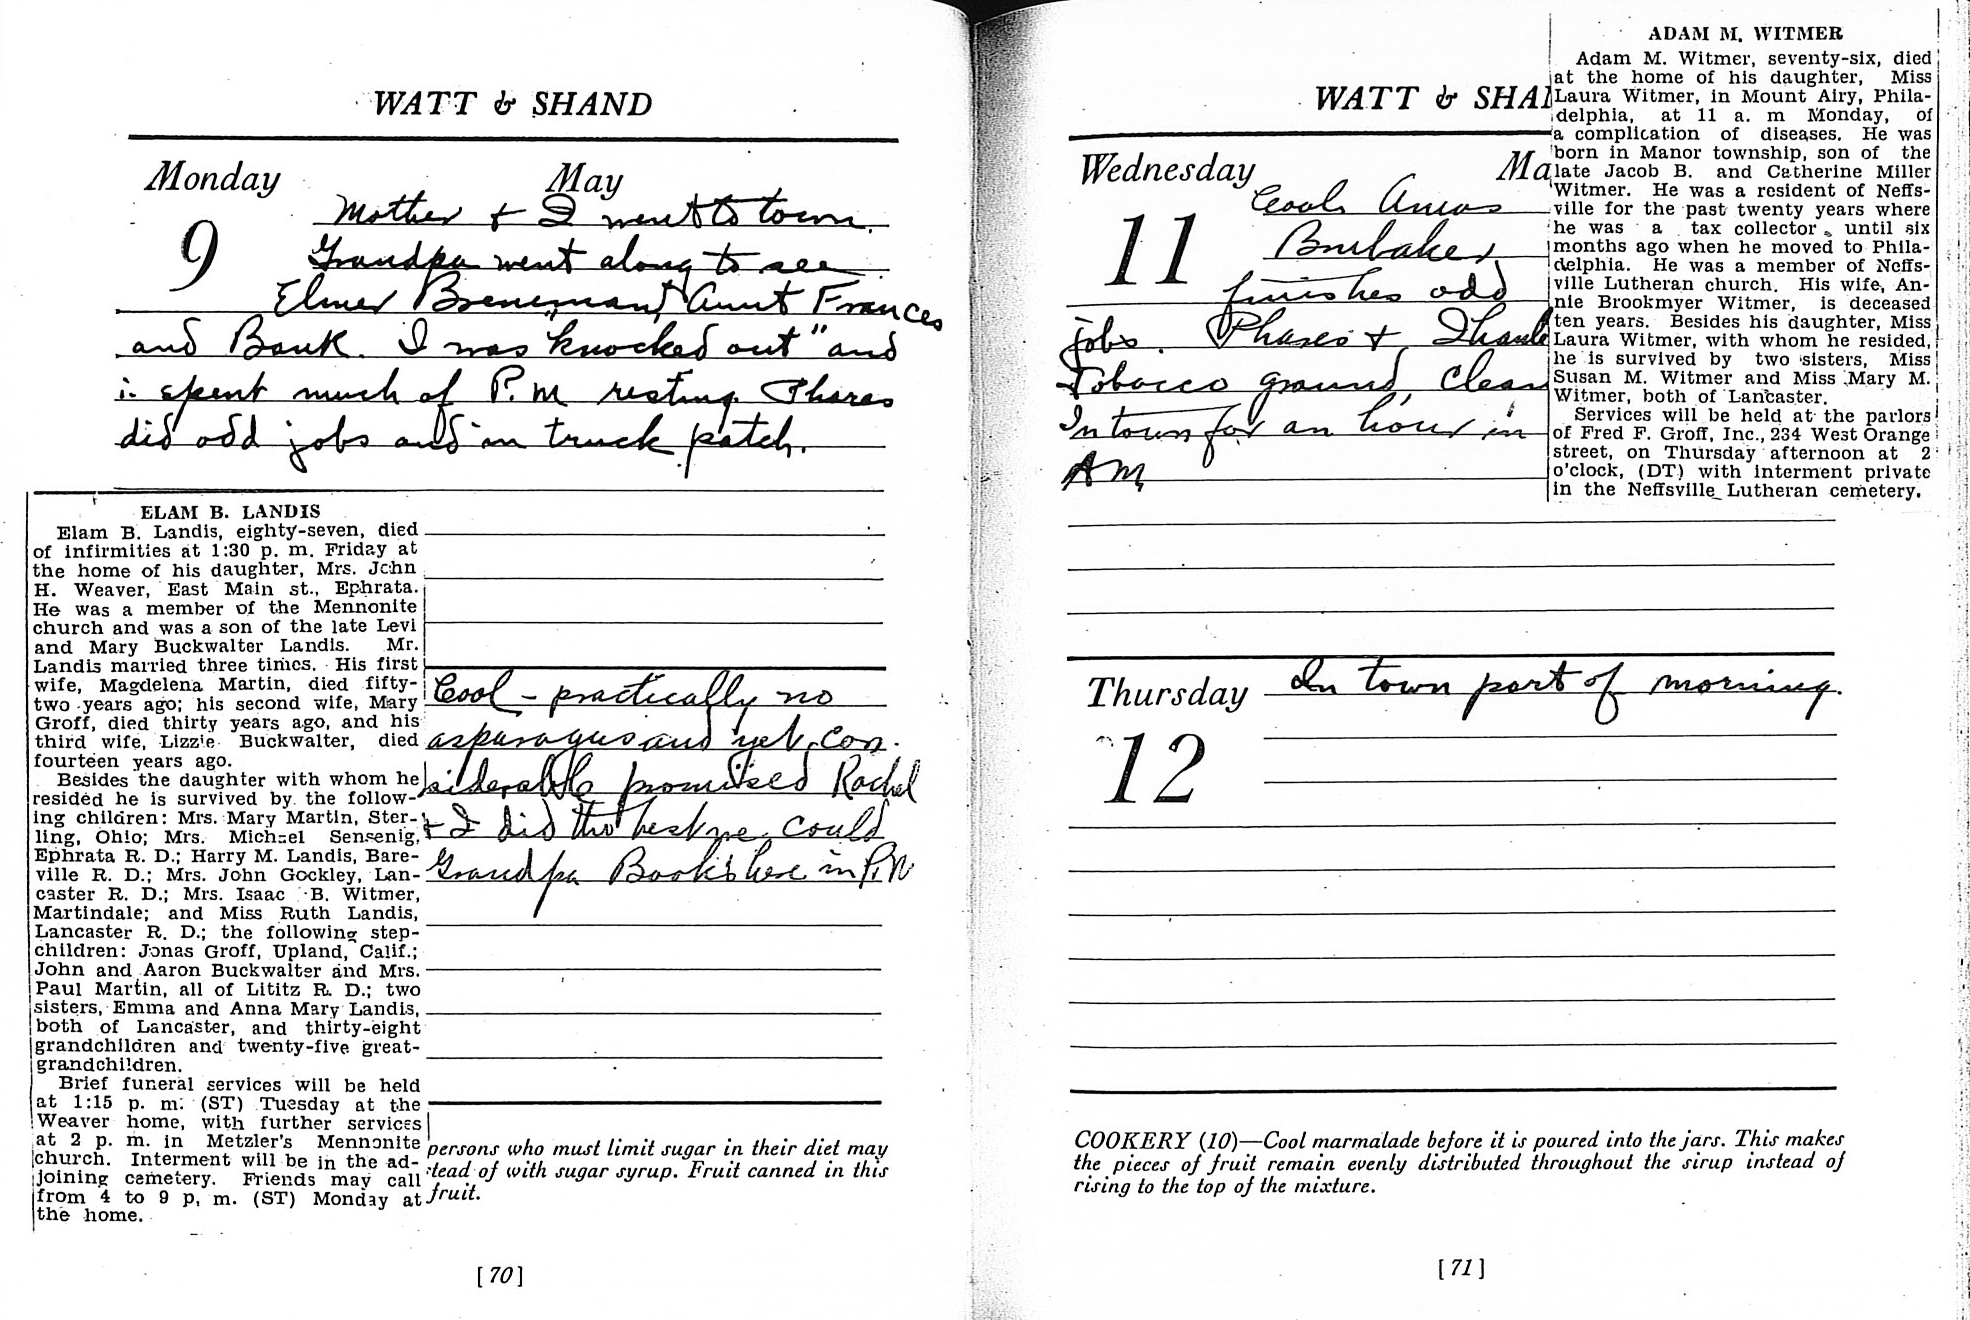 WATT & SHAND
Monday May
9
Mother & I went to town.
Grandpa went along to see
Elmer Breneman, Aunt Frances
and Bank. I was "knocked out" and
spent much of P.M resting. Phares
did odd jobs and in truck patch.
ELAM B. LANDIS
Elam B. Landis, eighty-seven, died
of infirmities at 1:30 p. m. Friday at
the home of his daughter, Mrs. John
H. Weaver, East Main st., Ephrata.
He was a member of the Mennonite
church and was a son of the late Levi
and Mary Buckwalter Landis. Mr.
Landis married three times. His first
wife, Magdelena Martin, died fifty-
two years ago; his second wife, Mary
Groff, died thirty years ago, and his
third wife, Lizzie Buckwalter, died
fourteen years ago.
Besides the daughter with whom he
resided he is survived by the follow-
ing children: Mrs. Mary Martin, Ster-
ling, Ohio; Mrs. Michael Sensenig,
Ephrata R. D.; Harry M. Landis, Bare-
ville R. D.; Mrs. John Gockley, Lan-
caster R. D.; Mrs. Isaac B. Witmer,
Martindale; and Miss Ruth Landis,
Lancaster R. D.; the following step-
children: Jonas Groff, Upland, Calif.;
John and Aaron Buckwalter and Mrs.
Paul Martin, all of Lititz R. D.; two
sisters, Emma and Anna Mary Landis,
both of Lancaster, and thirty-eight
grandchildren and twenty-five great-
grandchildren.
Brief funeral services will be held
at 1:15 p. m. (ST) Tuesday at the
Weaver home, with further services
at 2 p. m. in Metzler's Mennonite
church. Interment will be in the ad-
joining cemetery. Friends may call
from 4 to 9 p, m. (ST) Monday at
the home.
Cool - practically no
asparagus and yet con-
siderable promised Rachel
& I did the best we could
Grandpa Book's here in P.M
persons who must limit sugar in their diet may
tead of with sugar syrup. Fruit canned in this
fruit.
[70]
WATT & SHA
Wednesday Ma
11
Cool. Amos
Brubaker
finishes odd
jobs. Phares &
Tobacco ground, clean
In town for an hour in
AM
ADAM M. WITMER
Adam M. Witmer, seventy-six, died
at the home of his daughter, Miss
Laura Witmer, in Mount Airy, Phila-
delphia, at 11 a. m Monday, of
a complication of diseases. He was
born in Manor township, son of the
late Jacob B. and Catherine Miller
Witmer. He was a resident of Neffs-
ville for the past twenty years where
he was a tax collector, until six
months ago when he moved to Phila-
delphia. He was a member of Neffs-
ville Lutheran church. His wife, An-
nie Brookmyer Witmer, is deceased
ten years. Besides his daughter, Miss
Laura Witmer, with whom he resided,
he is survived by two sisters, Miss
Susan M. Witmer and Miss Mary M.
Witmer, both of Lancaster.
Services will be held at the parlors
of Fred F. Groff, Inc., 234 West Orange
street, on Thursday afternoon at 2
o'clock, (DT) with interment private
in the Neffsville Lutheran cemetery.
Thursday
12
In town part of morning.
COOKERY (10)—Cool marmalade before it is poured into the jars. This makes
the pieces of fruit remain evenly distributed throughout the sirup instead of
rising to the top of the mixture.
[71]